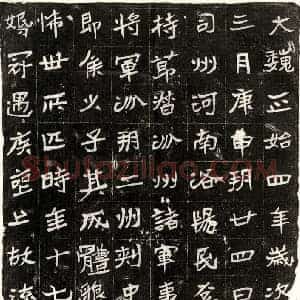 大魏正始四年歲次
三月庚申朔廿四日
司州河南洛陽民
持節督汾州諸軍事
將軍汾朔二州刺史
即祭火子其成體貌
怖世所匹時年十七
婚冠遇疾上故
Shufaziliao.com